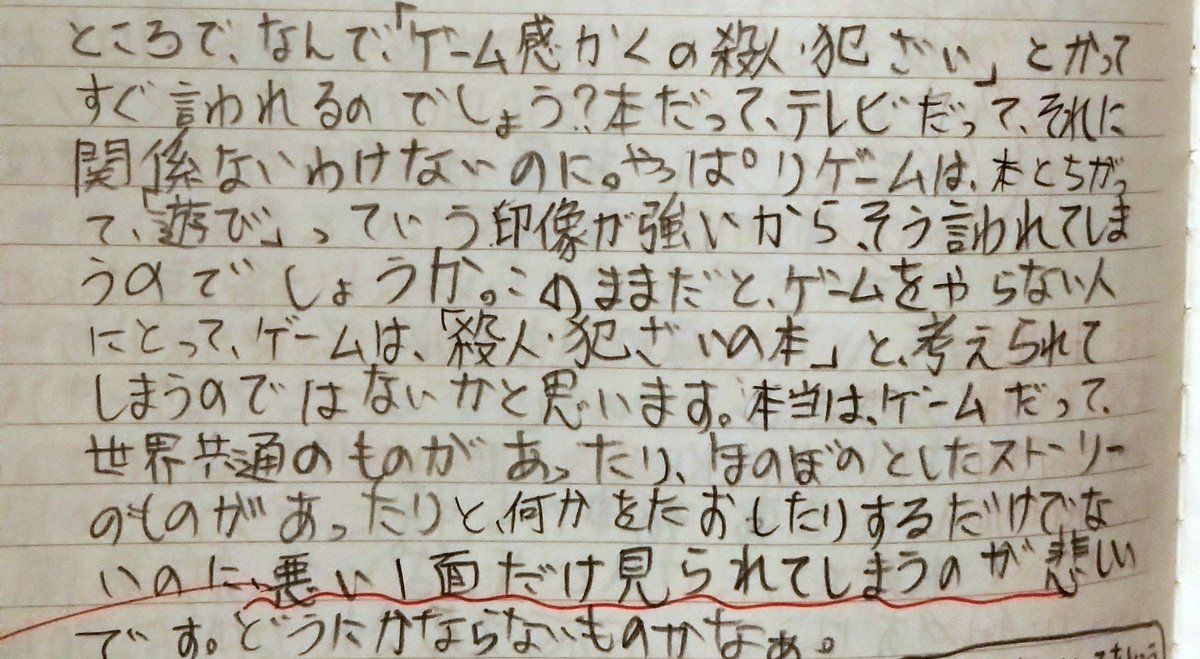 ところで、なんで、「ゲーム感かくの殺人・犯ざい」とかって
すぐ言われるのでしょう?本だって、テレビだって、それに
関係ないわけないのに。やっぱりゲームは、本とちがっ
て、「遊び」っていう印像が強いから、そう言われてしま
うのでしょうか。このままだと、ゲームをやらない人
にとって、ゲームは、「殺人・犯ざいの本」と、考えられて
しまうのではないかと思います。本当は、ゲームだって、
世界共通のものがあったり、ほのぼのとしたストーリー
のものがあったりと、何かをたおしたりするだけでな
いのに、悪い1面だけ見られてしまうのが悲しい
です。どうにかならないものかなぁ。